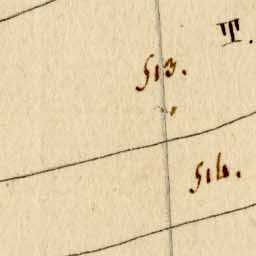 T.
513.
514.